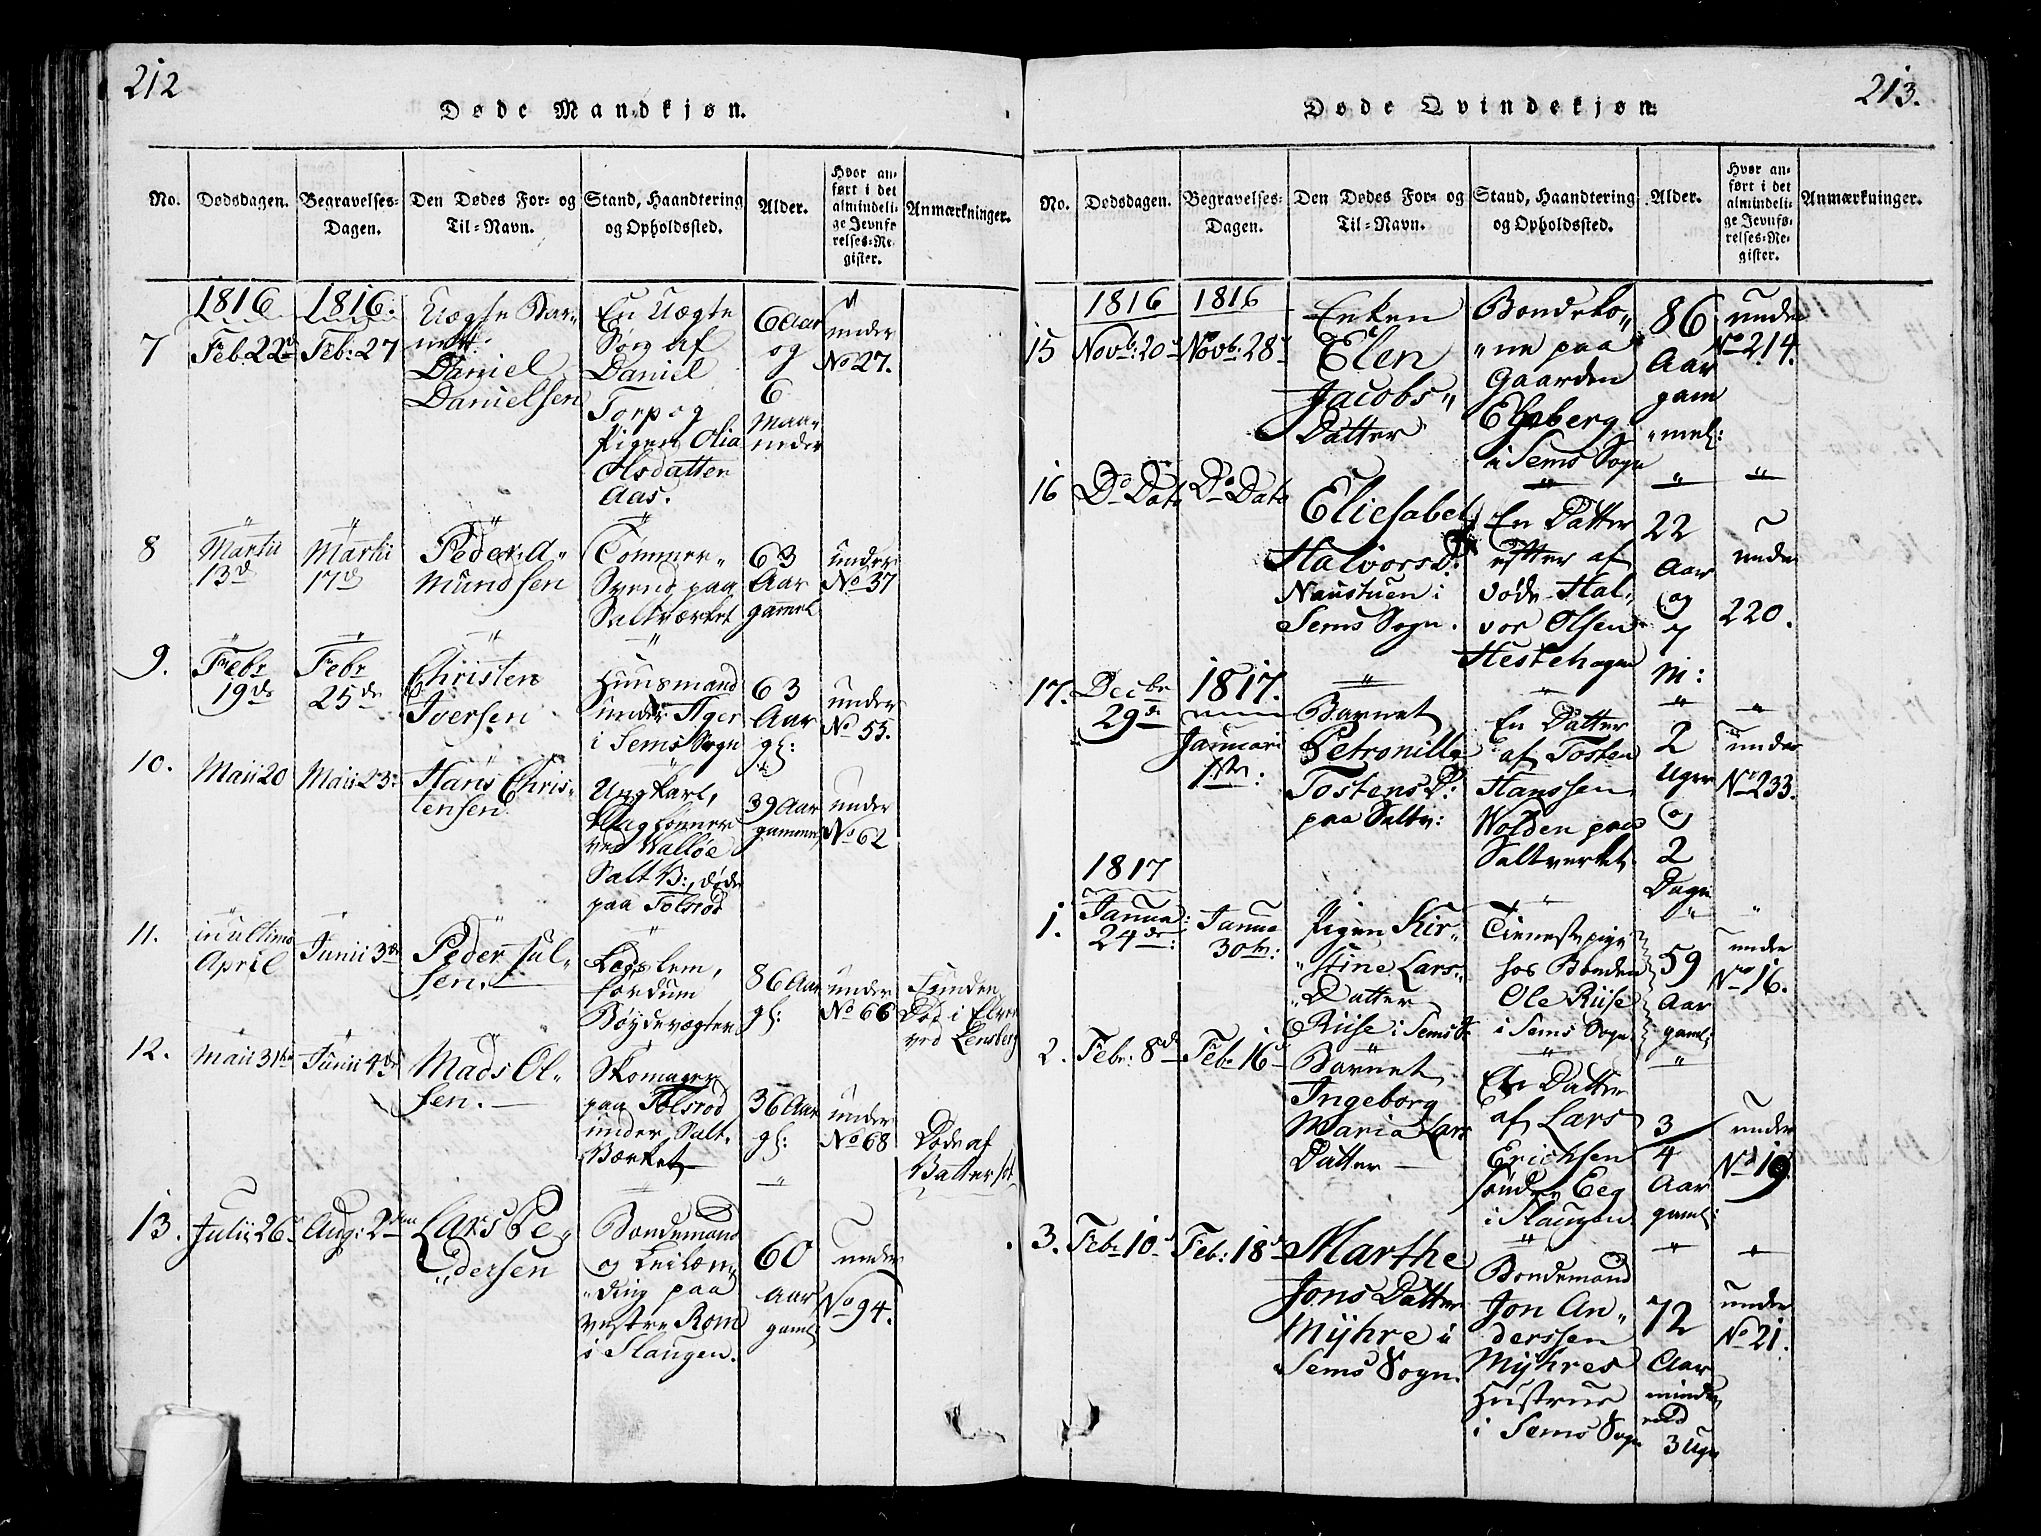 212
Døde Mandkjøn.
No.
Dødsdagen.
Begravelses-
Dagen.
Den Dødes For- og
Til-Navn.
Stand, Haandtering
og Opholdssted.
Alder.
Hvor an-
ført i det
almindeli-
ge Jevnfø-
relses-Re-
gister.
Anmærkninger.
7
1816
Feb. 22d
1816.
Feb: 27
Uægte Bar-
net
Daniel
Danielsen
En Uægte
Søn af
Daniel
Torp og
Pigen Olia
Olsdatter
Aas.
6 Aar
og
6
Maa-
neder
under
No 27.
8
Martii
13d
Martii
17d
Peder A-
mundsen
Tømmer-
Svend paa
Saltværket
63
Aar
gammel
under
No 37
9.
Febr
19de
Febr
25de
Christen
Iversen
Huusmand
under Ager
i Sems Sogn
63
Aar
gl:
under
No 55.
10.
Maii 20
Maii 23
Hans Chris-
tensen
Ungkarl,
ved Walløe
Salt B:, døde
paa Tolsrød
39 Aar
gammel
under
No 62
11.
in ultimo
April
Junii 3de
Peder Jul-
sen.
Legslem,
fordum
Bøydevægter
86 Aar
gl:
under
No 66
Funden
Død i Elven
ved Tensberg
12.
Maii 31te
Junii 4de
Mads Ol-
sen.
Skomager
paa Tolsrød
under Salt-
Værket
36 Aar
gl:
under
No 68
Døde af
Vattersot
13.
Julii 26
Aug: 2den
Lars Pe-
dersen
Bondemand
og Leilæn-
ding paa
vestre Rom
i Slaugen.
60
Aar
gaml:
under
No 94.
213.
Døde Qvindekjøn
No.
Dødsdagen.
Begravelses-
Dagen.
Den Dødes For- og
Til-Navn.
Stand, Haandtering
og Opholdssted.
Alder.
Hvor an-
ført i det
almindeli-
ge Jevnfø-
relses-Re-
gister.
Anmærkninger.
15
1816
Novb: 20d
1816
Novb: 28d
Enken
Elen
Jacobs-
Datter
Bondeko-
ne paa
Gaarden
Elgsberg
i Sems Sogn
86
Aar
gam
mel:
under
No 214.
16
Do Dato
Do Dato
Eliesabet
Halvorsd:
Naustuen i
Sems Sogn.
En Datter
efter af
døde Hal-
vor Olsen
Hestehagen
22
Aar
og
7
M:
under
220.
17.
Decbr
29de
1817.
Januari
1ste:
Barnet
Petronille
Tostens D:
paa Saltv:
En Datter
af Tosten
Hanssen
Wolden paa
Saltverket
2
Uger
og
2
Dage
under
No 233.
1817
1.
Janua:
24de:
Janua
30te:
Pigen Kir-
stine Lars-
Datter
Riise i Sems S
Tienestepige
hos Bonden
Ole Riise
i Sems Sogn
59
Aar
gaml:
under
No 16.
2.
Febr: 8d
Feb: 16d
Barnet
Ingeborg
Maria Lars
Datter
En Datter
af Lars
Erichsen
søndre Eeg
i Slaugen
3/4
Aar
gaml:
under
No 19
3.
Febr 10d
Feb: 18d
Marthe
Jons Datter
Mÿhre i
Sems Sogn.
Bondemand
Jon An-
derssen
Mÿhres
Hustrue
i Sems Sogn
72
Aar
mindre
end
3 Uger
under
No 21.